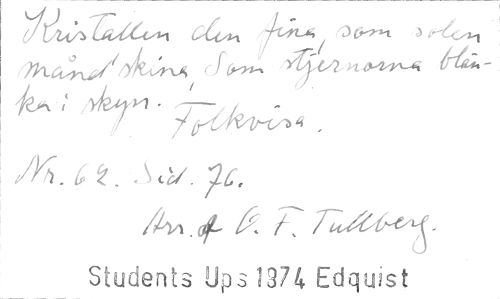 Kristallen den fina, som solen
månd' skina, Som stjernorna blän-
ka i skyn.
Folkvisa.
Nr. 62. Sid. 76.
Arr. af O. F. Tullberg.
Students Ups 1874 Edquist